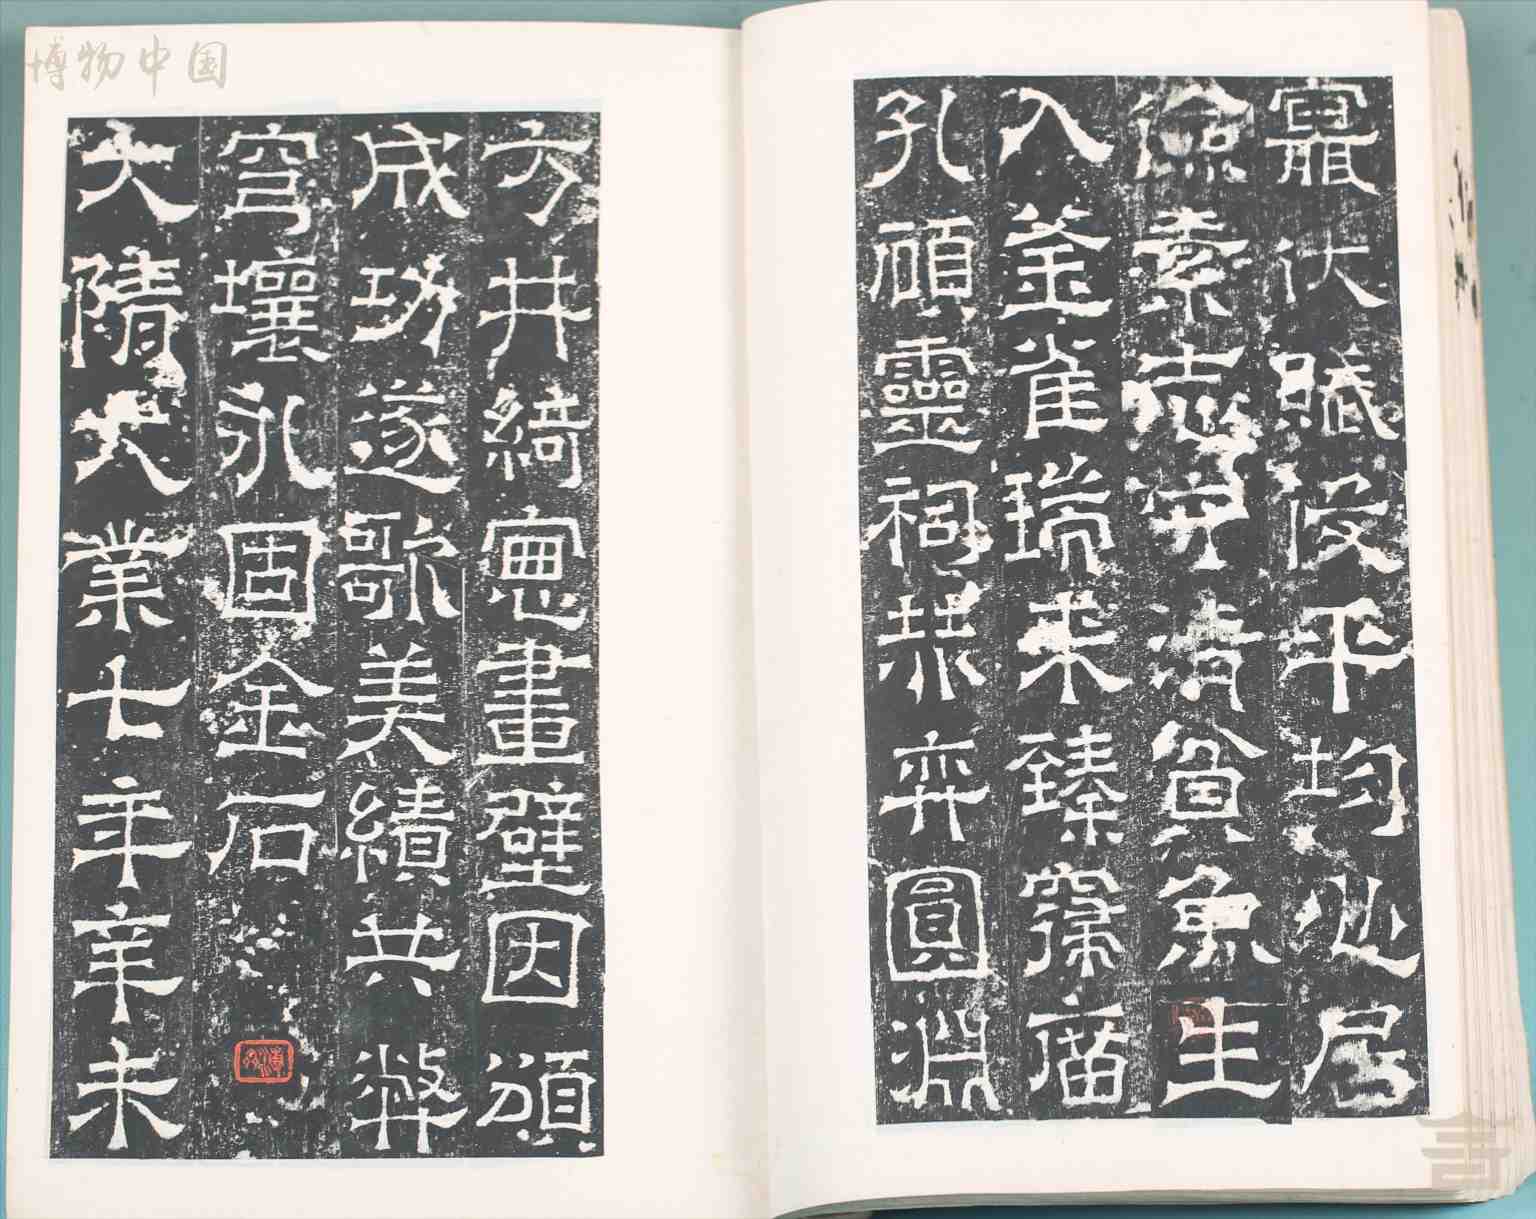 竄伏賦役平均心居
儉素志守清貧魚生
入釜雀瑞來臻寢庿
孔碩靈祠恭弈圓淵
方井綺窻畫壁因頌
成功遂歌美績共弊
穹壤永固金石
大隋大業七年辛未
博物中国